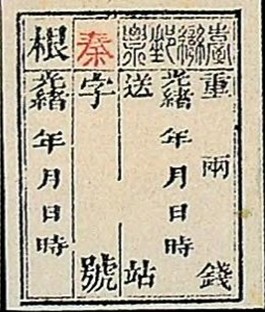 臺灣郵票
重 兩 錢
光緒 年 月 日 時
送 站
秦字 號
根
光緒 年 月 日 時